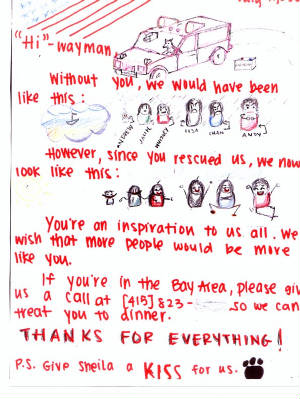 "Hi"-wayman,
Without you, we would have been
like this:
LISA
ANDY
However, since you rescued us, we now
look like this:
You're an inspiration to us all. We
wish that more people would be more
like you.
If you're in the Bay Area, please giv
us a call at (415) 823- so we can
treat you to dinner.
THANKS FOR EVERYTHING!
P.S. Give Sheila a KISS for us.